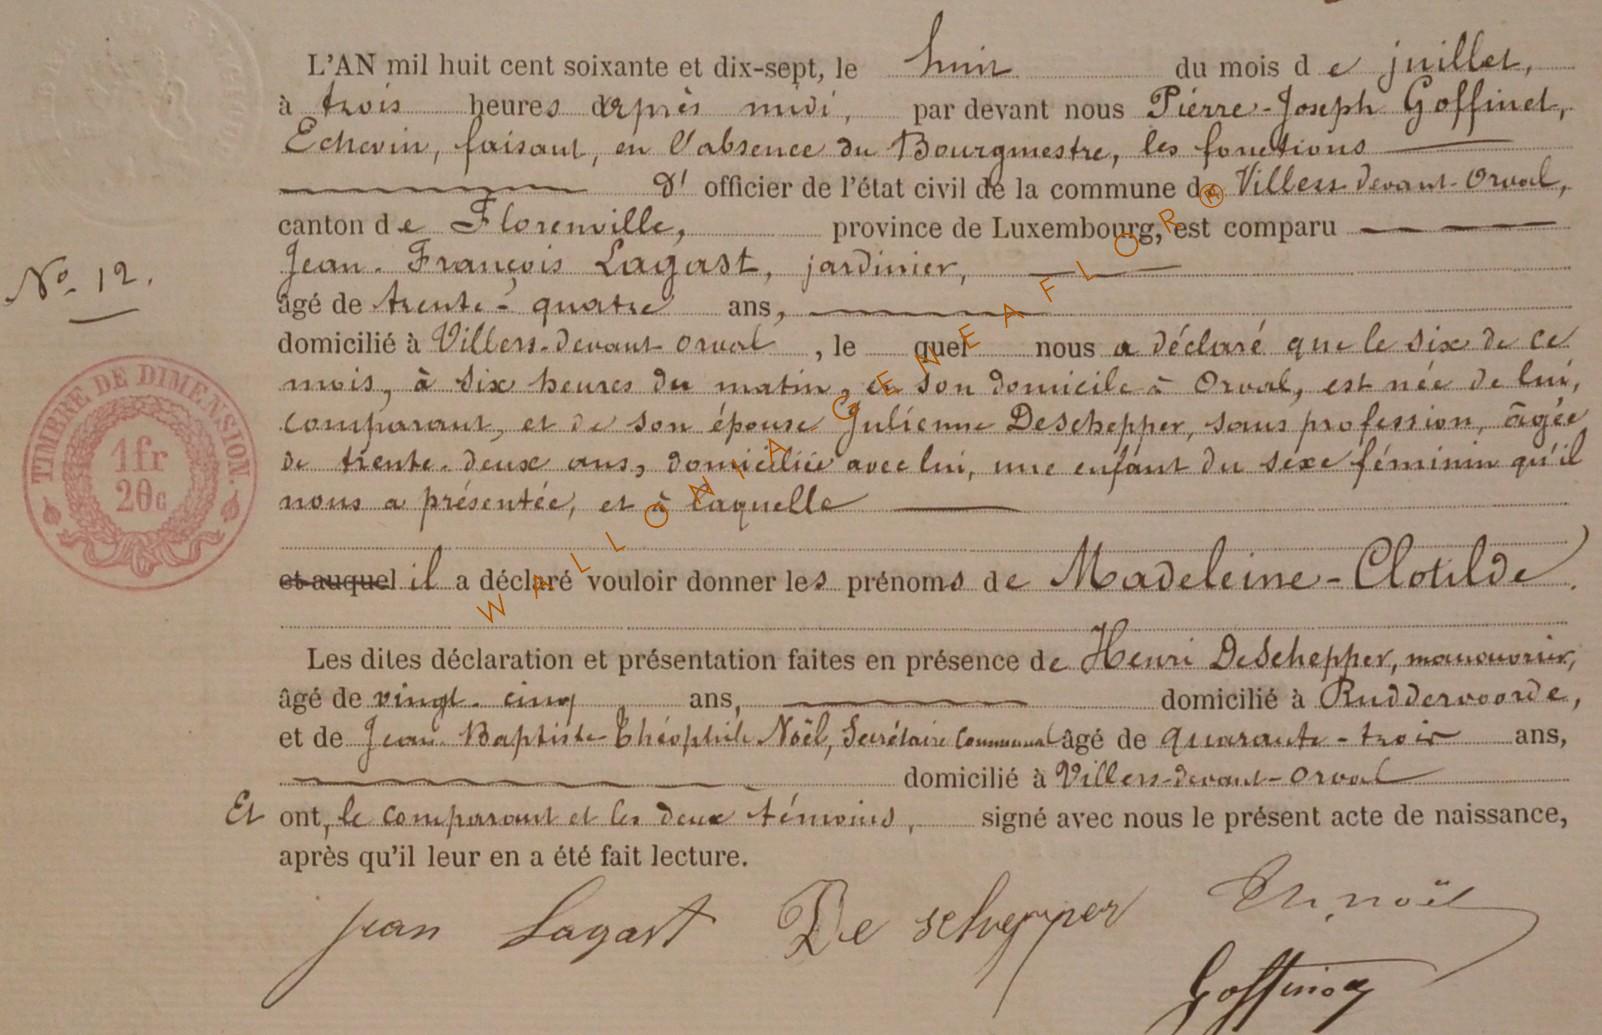 L'AN mil huit cent soixante et dix-sept, le huit du mois de juillet,
à trois heures d'après midi, par devant nous Pierre-Joseph Goffinet,
Echevin, faisant, en l'absence du Bourgmestre, les fonctions
d' officier de l'état civil de la commune de Villers-devant-Orval,
canton de Florenville, province de Luxembourg, est comparu
Jean-François Lagast, jardinier,
No. 12.
âgé de trente-quatre ans,
domicilié à Villers-devant-Orval, lequel nous a déclaré que le six de ce
mois, à six heures du matin, en son domicile à Orval, est née de lui,
comparant, et de son épouse Julienne DeSchepper, sans profession, âgée
de trente-deux ans, domiciliée avec lui, une enfant du sexe féminin qu'il
nous a présentée, et à laquelle
et auquel il a déclaré vouloir donner les prénoms de Madeleine-Clotilde.
Les dites déclaration et présentation faites en présence de Henri DeSchepper, manouvrier,
âgé de vingt-cinq ans, domicilié à Ruddervoorde,
et de Jean-Baptiste-Théophile Noël, Secrétaire Communal âgé de quarante-trois ans,
domicilié à Villers-devant-Orval
Et ont, le comparant et les deux témoins, signé avec nous le présent acte de naissance,
après qu'il leur en a été fait lecture.
jean Lagast De schepper Th. noël
Goffinet
TIMBRE DE DIMENSION.
1fr
20c
WALLONIA GENEAFLOR®